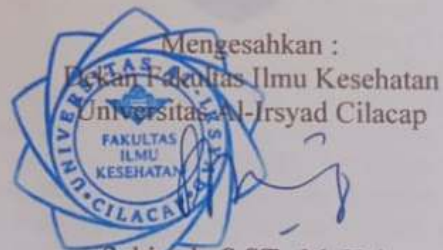 Mengesahkan :
Dekan Fakultas Ilmu Kesehatan
Universitas Al-Irsyad Cilacap
UNIVERSITAS AL-IRSYAD
FAKULTAS
ILMU
KESEHATAN
CILACAP